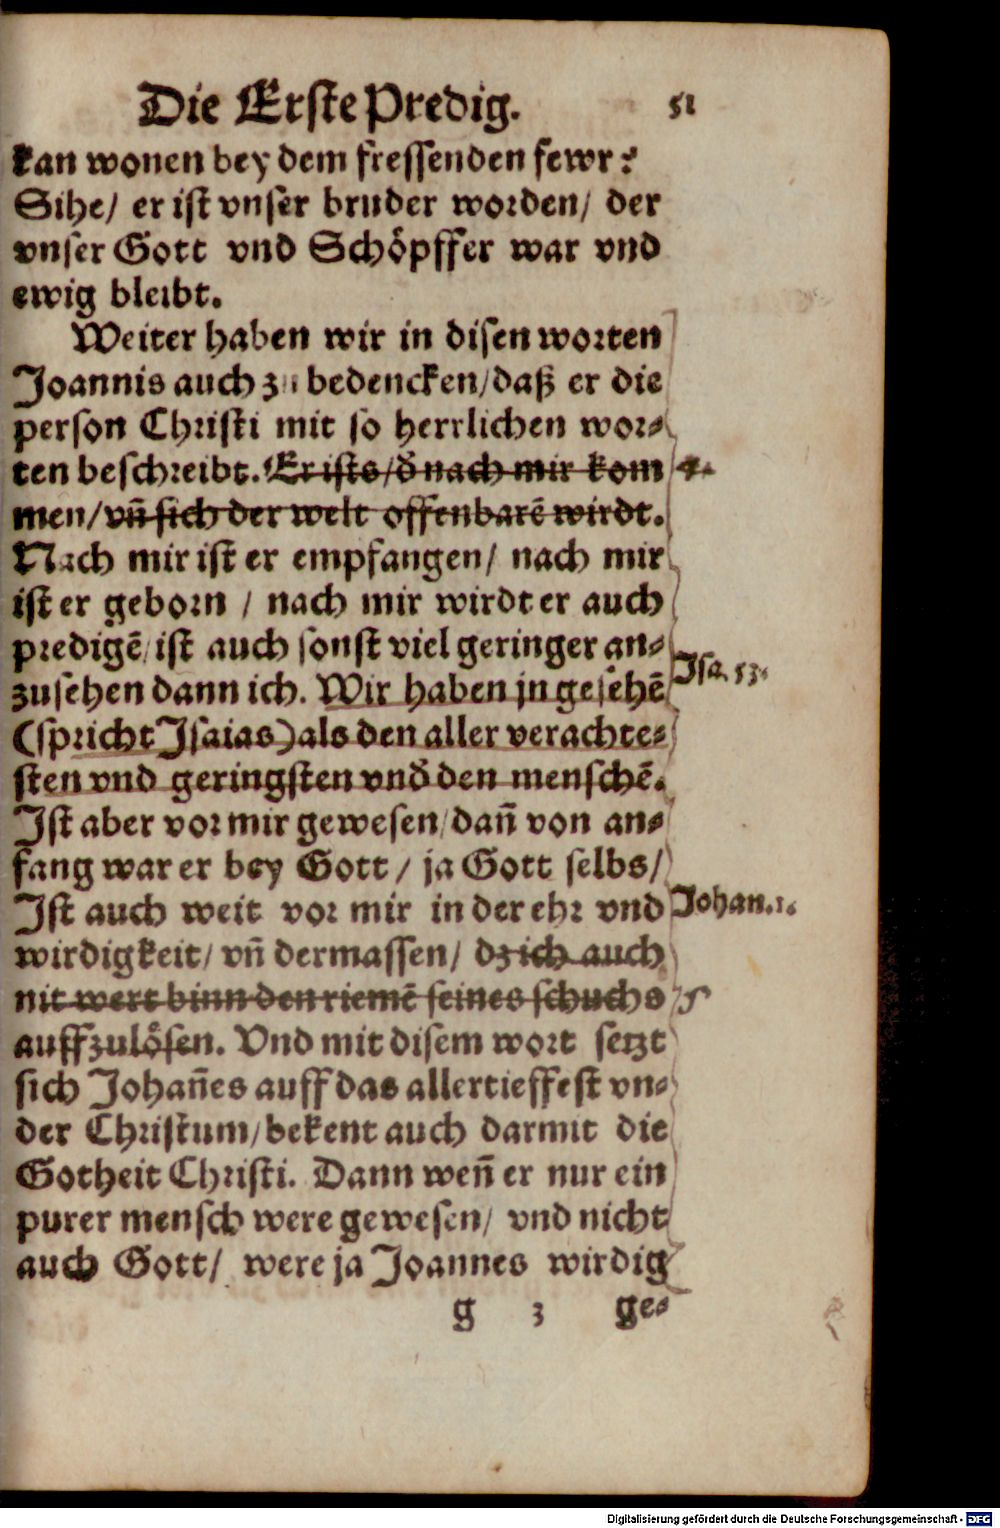 Die Erste Predig. 51
kan wonen bey dem fressenden fewr?
Sihe/ er ist vnser bruder worden/ der
vnser Gott vnd Schöpffer war vnd
ewig bleibt.
Weiter haben wir in disen worten
Joannis auch zu bedencken/daß er die
person Christi mit so herrlichen wor⸗
ten beschreibt. Er ists/ď nach mir kom
men/vñ sich der welt offenbarē wirdt.
Nach mir ist er empfangen/ nach mir
ist er geborn / nach mir wirdt er auch
predigē/ist auch sonst viel geringer an⸗
zusehen dann ich. Wir haben jn gesehē
Isa. 53.
(spricht Isaias)als den aller verachte⸗
sten vnd geringsten vnď den menschē.
Ist aber vor mir gewesen/dañ von an⸗
fang war er bey Gott / ja Gott selbs/
Ist auch weit vor mir in der ehr vnd
Johan.1.
wirdigkeit/ vñ dermassen/ dz ich auch
nit wert binn den riemē seines schuchs
auffzulösen. Vnd mit disem wort setzt
sich Johañes auff das allertieffest vn⸗
der Christum/bekent auch darmit die
Gotheit Christi. Dann weñ er nur ein
purer mensch were gewesen/ vnd nicht
auch Gott/ were ja Joannes wirdig
g 3 ge⸗
Digitalisierung gefördert durch die Deutsche Forschungsgemeinschaft - DFG